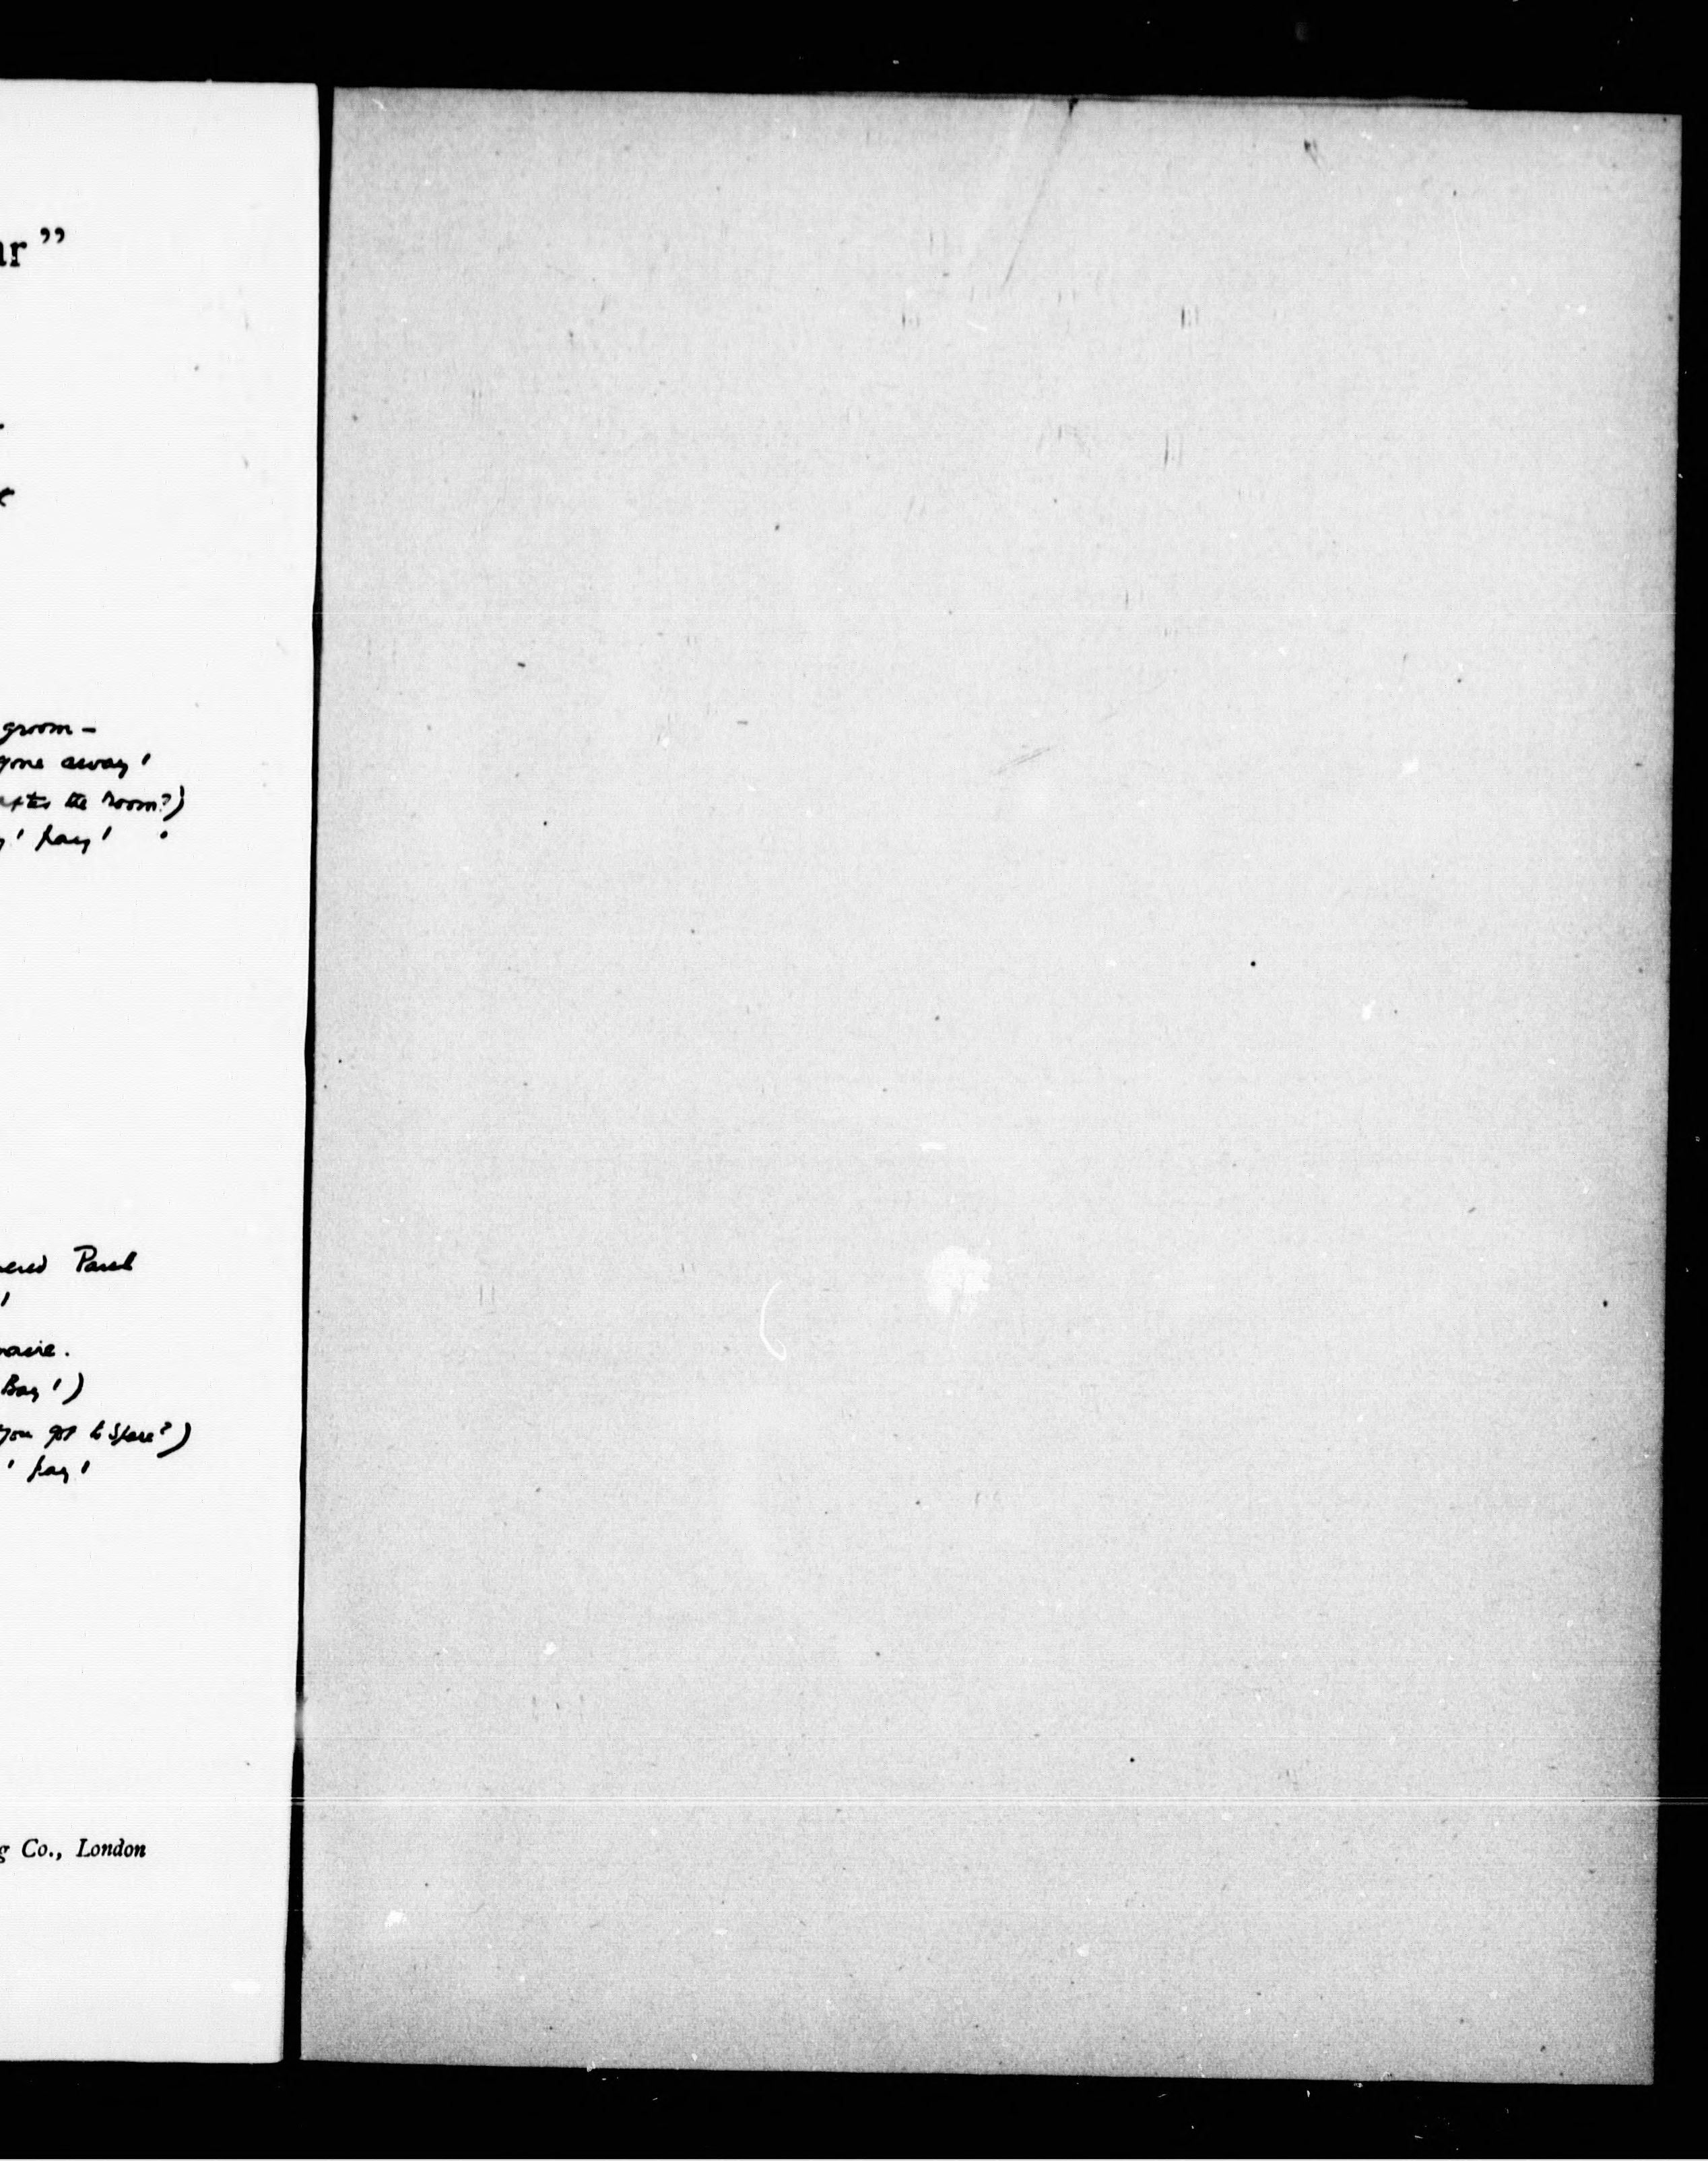 ar”
groom –
gone away!
the room?)
! pay!
Paul
Bag!)
you got to spare?)
! pay!
Co., London